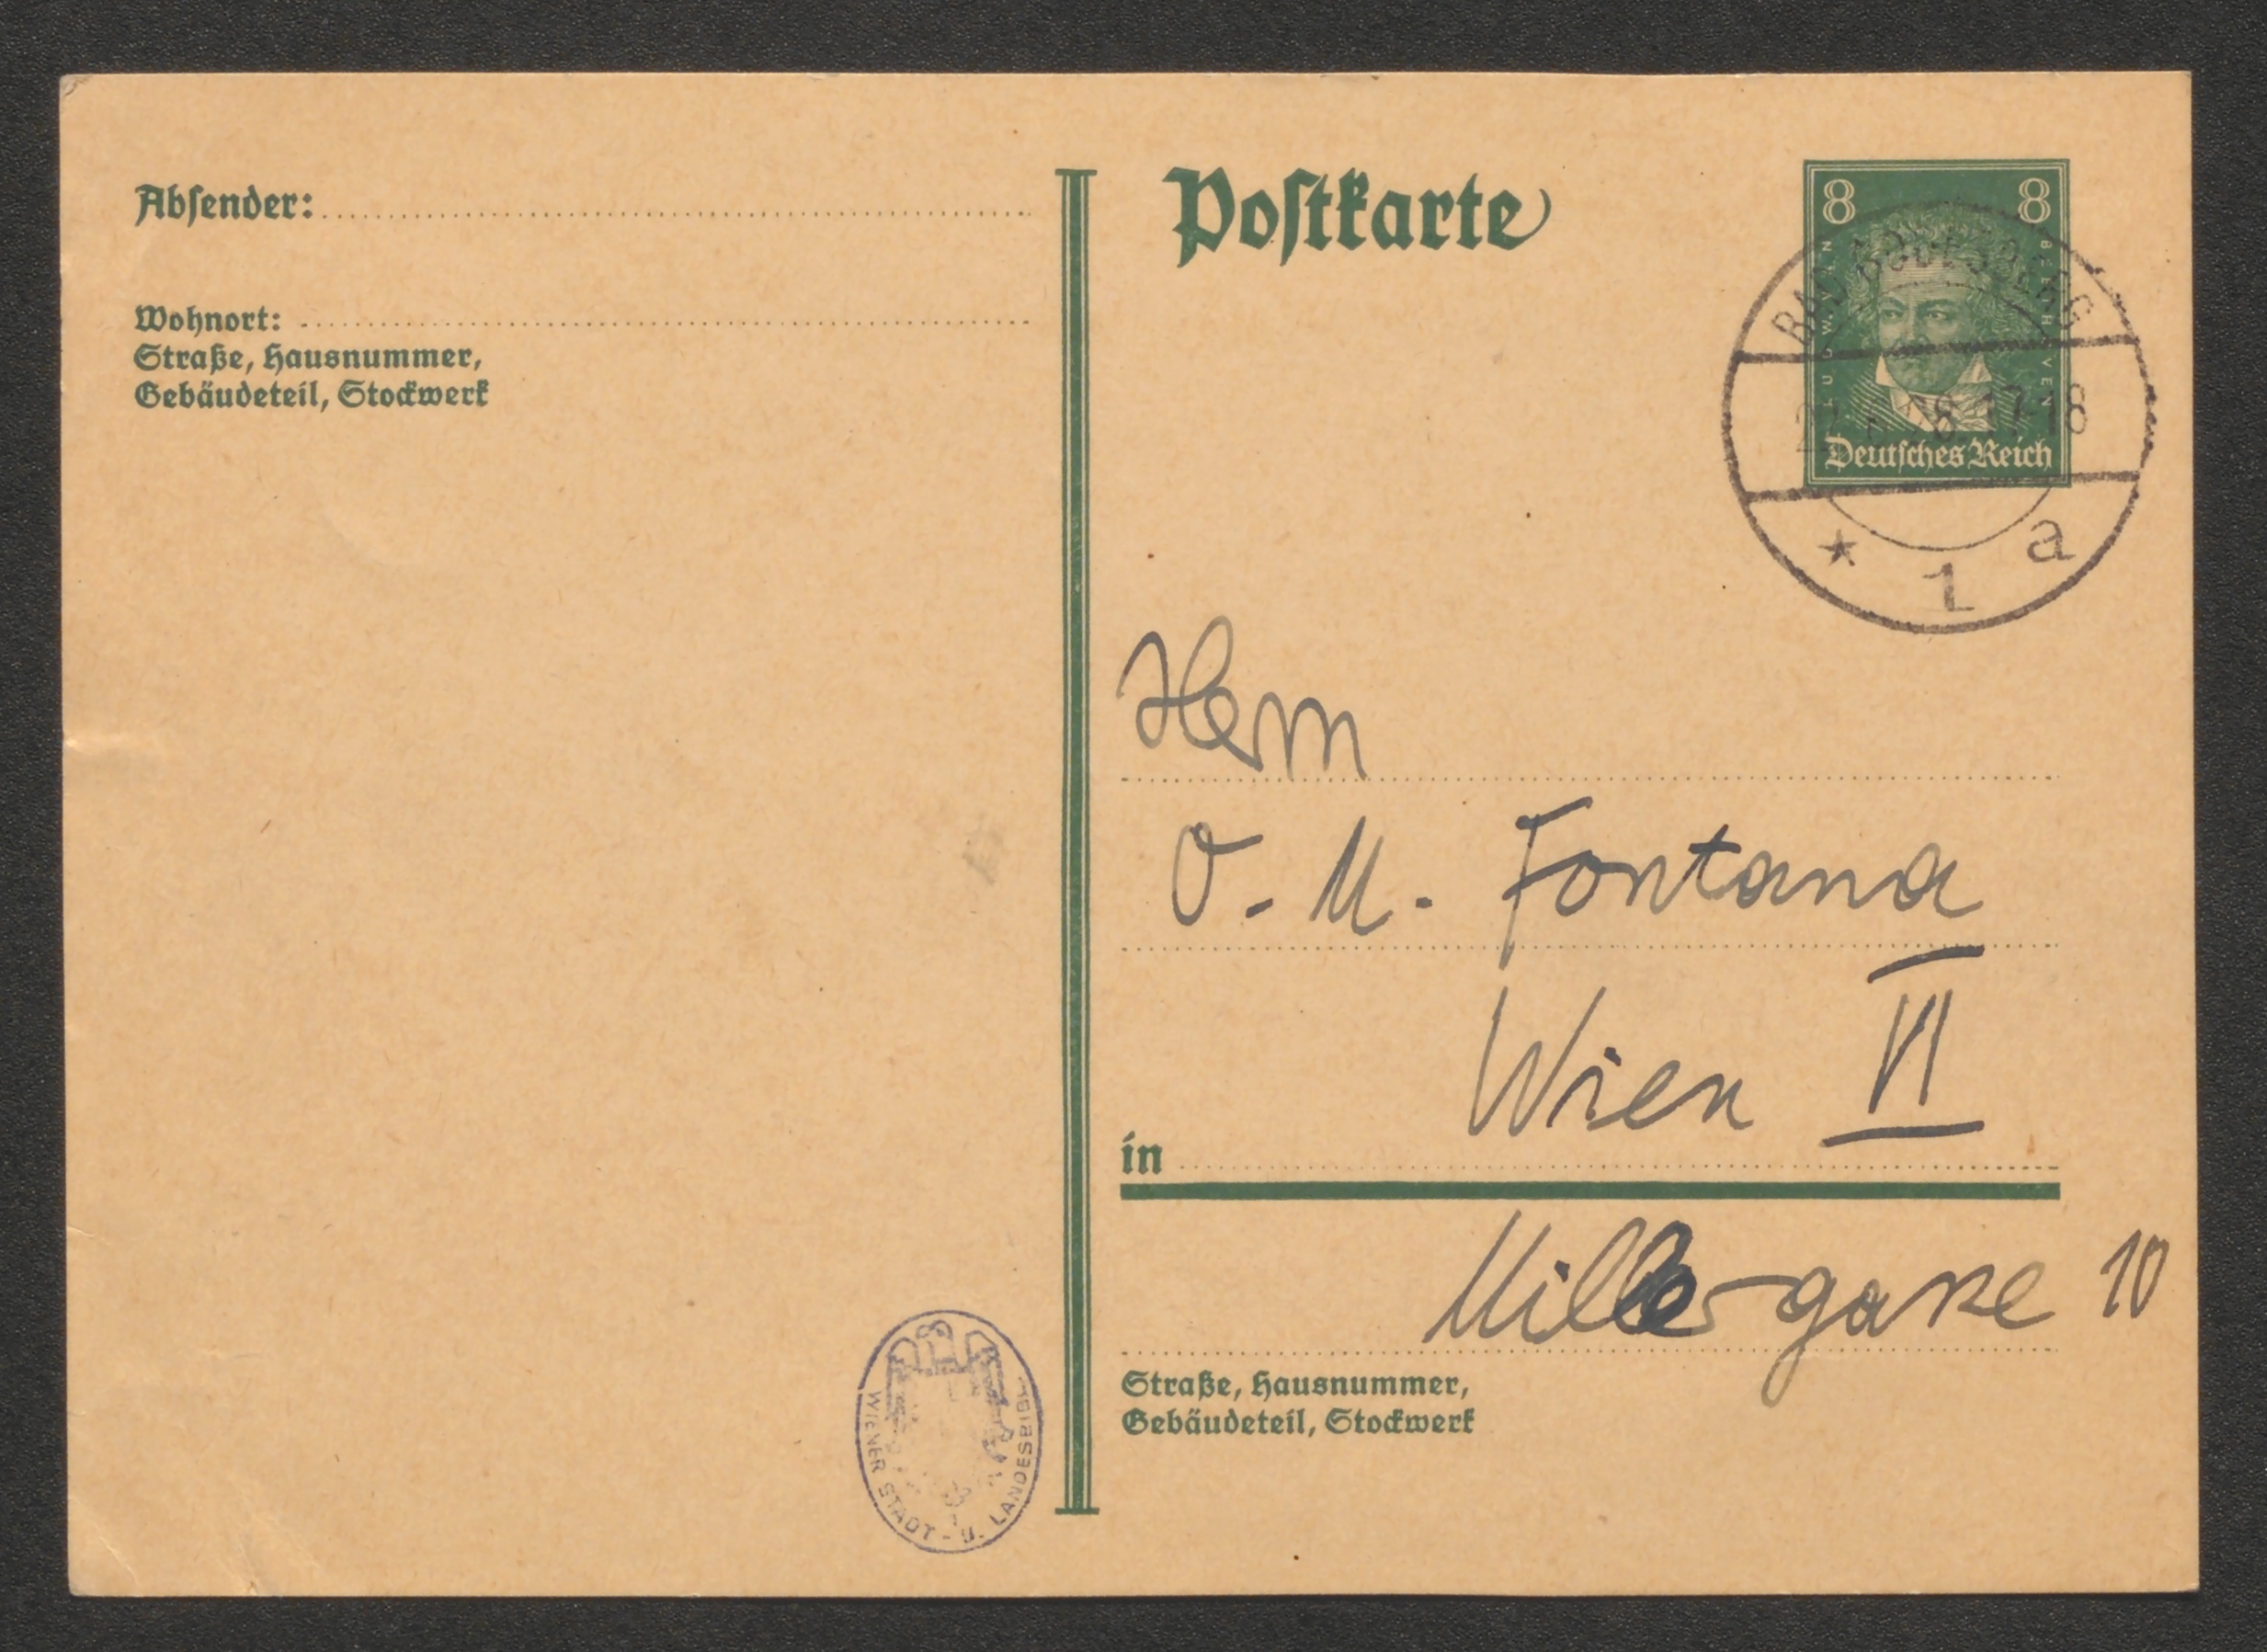 Absender:
Wohnort:
Straße, Hausnummer,
Gebäudeteil, Stockwerk
Postkarte
8 8
LUDW. VAN BEETHOVEN
Deutsches Reich
BAD GODESBERG
17-18
* 1 a
Herrn
O. M. Fontana
Wien VI
in
Millergasse 10
Straße, Hausnummer,
Gebäudeteil, Stockwerk
WIENER STADT- U. LANDESBIBL.